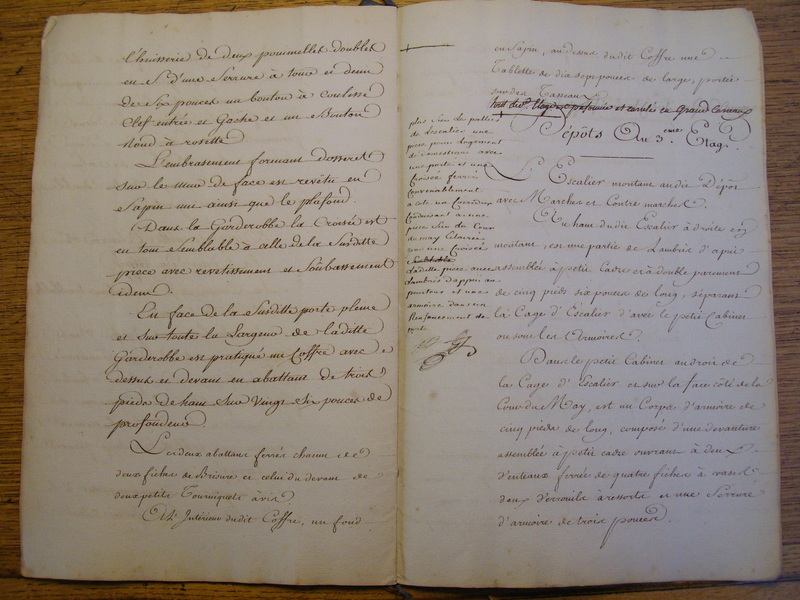 L'huisserie de deux pommelles doubles
en S. d'une Serrure à tour et demi
de Six pouces un bouton à Coulisse
Clef entrée et Gache et un Bouton
Rond à rosette
L'embrasement formant dosseret
sur le mur de face est revêtu en
Sapin uni ainsi que le plafond.
Dans la Garderobbe la Croisée est
en tout Semblable à celle de la Susditte
pièce avec revetissement et Soubassement
idem.
En face de la Susditte porte pleine
et sur toute la Largeur de laditte
Garderobbe est pratiqué un Coffre avec
dessus et devant en abattant de trois
pieds de haut sur vingt Six pouces de
profondeur
Les deux abattans ferrés chacun de
deux fiches de Brisure et celui du devant de
deux petits Tourniquets à vis
A l'Intérieur dudit Coffre, un fond
en Sapin, au dessus dudit Coffre une
Tablette de dix sept pouces de large, portée
sur des Tasseaux
et carrelés en Grand Carreaux
Dépôts Au 3.eme Etage.
plus Sur le pallier
de l'escalier une
piece pour logement
avec
une porte et une
Croisée ferrées
Convenablement
à côté un Corridor
Conduisant à une
piece Sur la Cour
du may Eclairée
par une Croisée
Semblable
laditte piece avec
Lambris d'appui au
pourtour et une
armoire dans un
Renfoncement de
porte
L'Escalier montant audit Dépôt
avec Marches et Contre marches.
Au haut dudit Escalier à droite en
montant, est une partie de Lambris d'appui
assemblée à petit Cadre et à double parement
de cinq pieds six pouces de long, séparant
la Cage d'Escalier d'avec le petit Cabinet
ou sont les Armoires.
Dans le petit Cabinet au droit de
la Cage d'Escalier et sur la face côté de la
Cour du May, est un Corps d'armoire de
cinq pieds de long, composé d'une devanture
assemblée à petit cadre ouvrant à deux
Venteaux ferrée de quatre fiches à vases
deux Verrouils à ressorts et une Serrure
d'armoire de trois pouces.